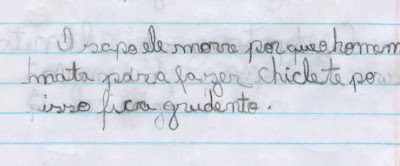 O sapo ele morre por queo homem
mata para fazer chiclete por
isso fica grudento.